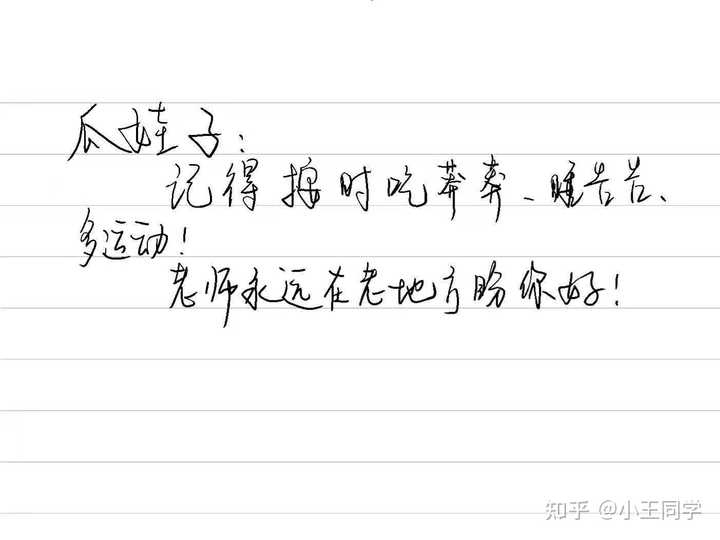 瓜娃子：
记得按时吃莽莽、睡告告、
多运动！
老师永远在老地方盼你好！
知乎 @小王同学